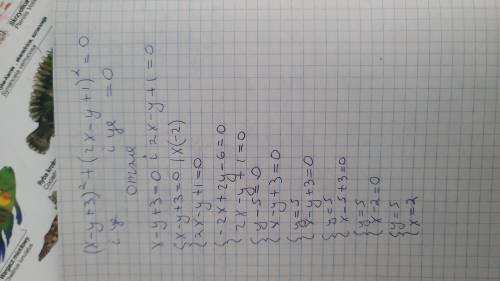 (x-y+3)²+(2x-y+1)²=0
і це і це =0
отже
x-y+3=0 і 2x-y+1=0
{x-y+3=0 |×(-2)
{2x-y+1=0
{-2x+2y-6=0
{2x-y+1=0
{y-5=0
{x-y+3=0
{y=5
{x-y+3=0
{y=5
{x-5+3=0
{y=5
{x-2=0
{y=5
{x=2